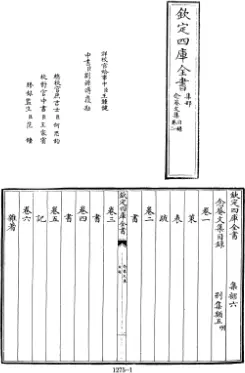 欽定四庫全書
集部
念菴文集
詳校官給事中臣王鍾健
中書臣劉源溥覆勘
總校官庶吉士臣何思鈞
校對官中書臣王家賓
謄錄監生臣范
欽定四庫全書 集部六
念菴文集目錄 別集類五明
卷一
策
表
疏
卷二
書
欽定四庫全書
卷三
書
卷四
書
卷五
記
卷六
雜著
1275-1